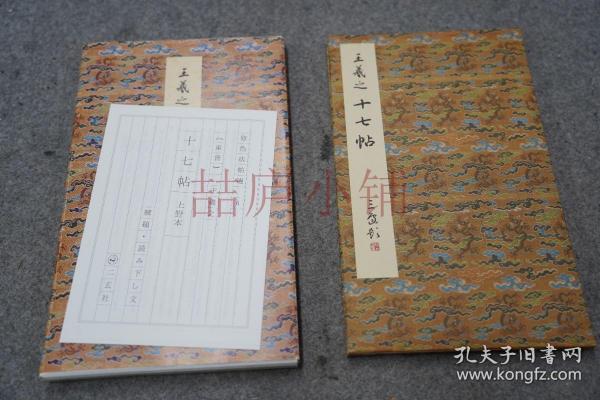 王羲之
原色法帖選
十七帖 上野本
解題・読み下し文
二玄社
王羲之 十七帖
喆庐小铺
孔夫子旧书网
www.kongfz.com